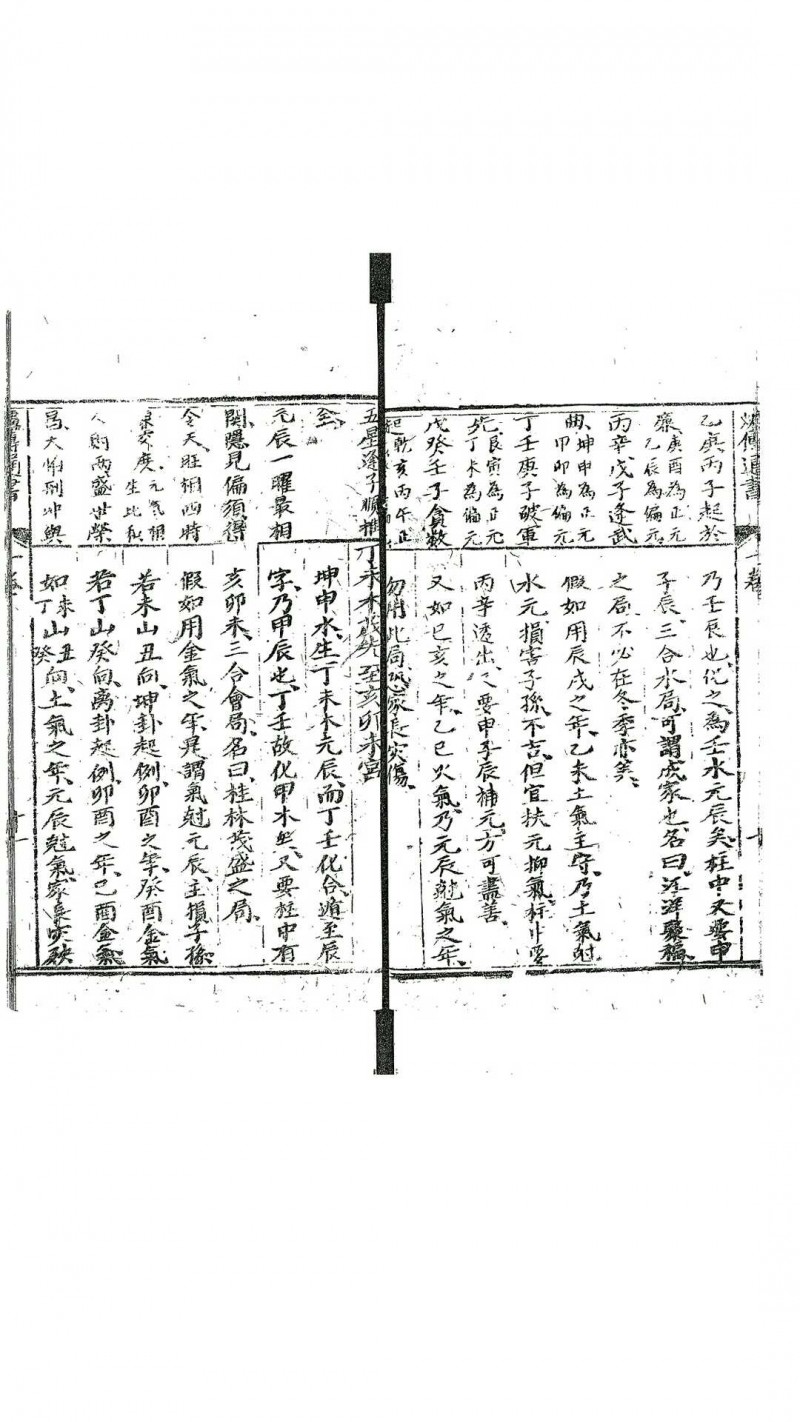 通書
乙庚丙子起於
廉庚酉為正元
乙辰為偏元
丙辛戊子逢武
曲坤申為正元
甲卯為偏元
丁壬庚子破軍
先艮寅為正元
丁未為偏元
戊癸壬子貪數
起乾亥丙午正
一卷
乃壬辰也化之為壬水元辰矣柱中又要申
子辰三合水局可謂成家也名曰汪洋聚福
之局不必在冬季亦美
假如用辰戌之年乙未土氣主守乃土氣尅
水元損害子孫不吉但宜扶元抑氣柱中要
丙辛透出又要申子辰補元方可盡善
又如巳亥之年乙巳火氣乃元辰尅氣之年
勿用此局恐家長灾傷
五星逢子順推
至
元辰一曜最相
關隱見偏須得
令天旺相四時
元氣相
生比和
則兩盛世榮
昌大
坤與
丁未木茂先至亥卯未宮
坤申水生丁未木元辰而丁壬化合遁至辰
字乃甲辰也丁壬故化甲木也又要柱中有
亥卯未三合會局名曰桂林茂盛之局
假如用金氣之年是謂氣尅元辰主損子孫
若未山丑向坤卦起例卯酉之年癸酉金氣
若丁山癸向离卦起例卯酉之年己酉金氣
如未山丑向土氣之年元辰尅氣家長灾殃
丁 癸
一卷
十一